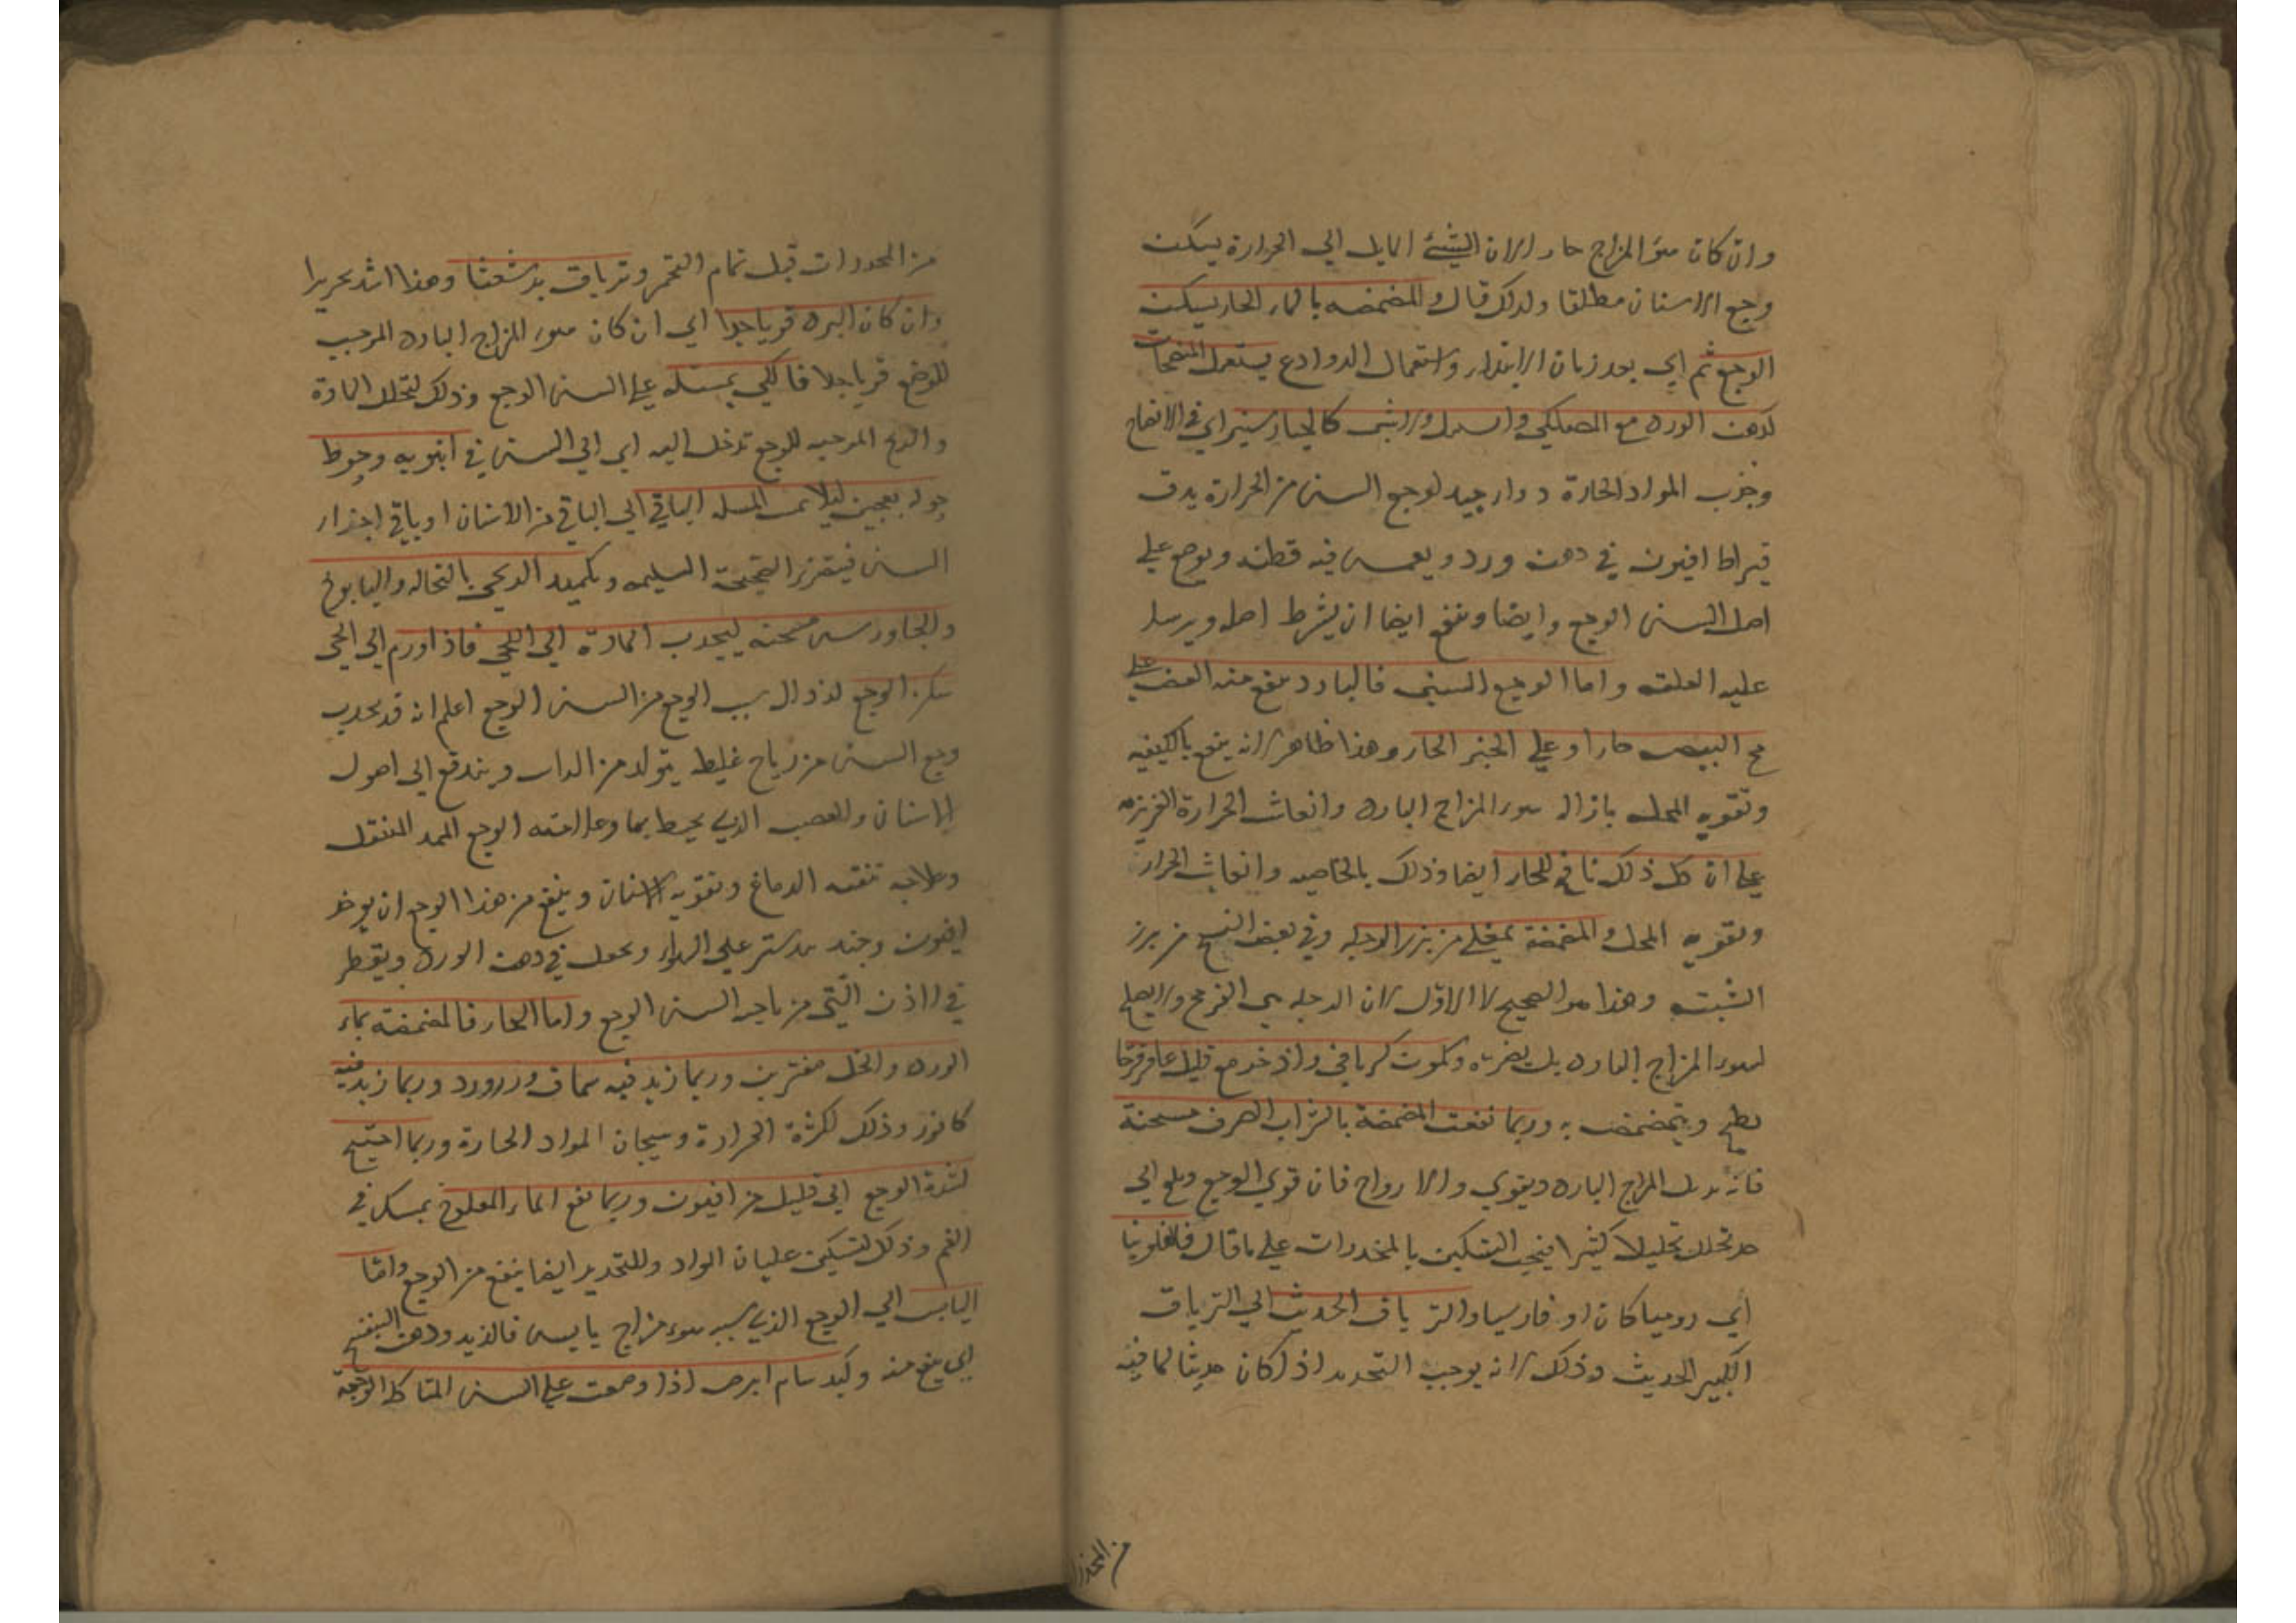 وان كان سوٓ المزاج حار الان الشيئ المايل الي الحرارة يسكن
وجع الاسنان مطلقا ولذلك قال والمضمضه بالماء الحار يسكن
الوجع ثم اي بعد زمان الابتداء واستعمال الروادع يستعمل المنضجات
كدهن الورد مع المصطكي والسنبل ولا شى كالخيار شنبر اي في الانضاج
وجذب المواد الحارة دواء جيد لوجع السن من الحرارة يدق
قيراط افيون في دهن ورد ويغمس فيه قطنه ويوضع علي
اصل السن الوجع وايضا وينفع ايضا ان يشرط اصله ويرسل
عليه العلقه واما الوجع السني فالبارد ينفع منه العض علي
مح البيض حارا وعلي الخبز الحار وهذا ظاهر لانه ينفع بالكيفيه
وتقويه المحل بازاله سوء المزاج البارد وانعاش الحرارة الغريزيه
علي ان كل ذلك نافع للحار ايضا وذلك بالخاصيه وانعاش الحرار
وتقويه المحل والمضمضة بمغلي من بزر الرجله وفي بعض النسخ من بزر
الشبت وهذا هو الصحيح لا الاول لان الرجله هي الفرفخ ولا يصلح
لسوء المزاج البارد بل يضره وكمون كرماني واذخر مع قليل عاقرقرحا
يطبخ ويتمضمض به وربما نفعت المضمضة بالشراب الصرف مسخنة
فانه يبدل المزاج البارد ويقوي والارواح فان قوي الوجع وبلغ الي
حد تحلل تحليلا كثيرا فيجب التسكين بالمخدرات علي ما قال فلافلونيا
اي روميا كان او فارسيا والترياق الحديث اي الترياق
الكبير الحديث وذلك لانه يوجب التخدير اذا كان حديثا لما فيه
من المخدرا
من المخدرات قبل تمام التخمر وترياق برشعثا وهذا اشد تخديرا
وان كان البرد قويا جدا اي ان كان سوء المزاج البارد الموجب
للوجع قويا جدا فالكي بمسله علي السن الوجع وذلك لتحلل المادة
والريح الموجبه للوجع تدخل اليه اي الي السن في انبوبه وحوط
حوله بعجين ليلا تمس المسله الباقي اي الباقي من الاسنان او باقي اجزاء
السن فيتضرر الصحيحة السليمه وتكميد اللحي بالنخاله والبابونج
والجاورس مسخنه ليجذب المادة الي اللحي فاذا ورم اي اللحي
سكن الوجع لزوال سبب الوجع من السن الوجع اعلم انه قد يحدث
وجع السن من رياح غليظ يتولد من الراس ويندفع الي اصول
الاسنان والعصب الذي يحيط بها وعلامته الوجع الممدد المنتقل
وعلاجه تنقيه الدماغ وتقويه الاسنان وينفع من هذا الوجع ان يوخذ
افيون وجند بيدستر علي السواء ويحل في دهن الورد ويقطر
في الاذن التي من جانب السن الوجع واما الحار فالمضمضه بماء
الورد والخل مفترين وربما زيد فيه سماق وورد وربما زيد فيه
كافور وذلك لكثرة الحرارة وهيجان المواد الحارة وربما احتيج
لشدة الوجع الي قليل من افيون وربما نفع الماء المثلوج يمسك في
الفم وذلك لتسكين غليان المواد وللتخدير ايضا ينفع من الوجع واما
اليابس اي الوجع الذي سببه سوء مزاج يابس فالزبد ودهن البنفسج
اي ينفع منه وكبد سام ابرص اذا وضعت علي السن المتاكله الوجعة